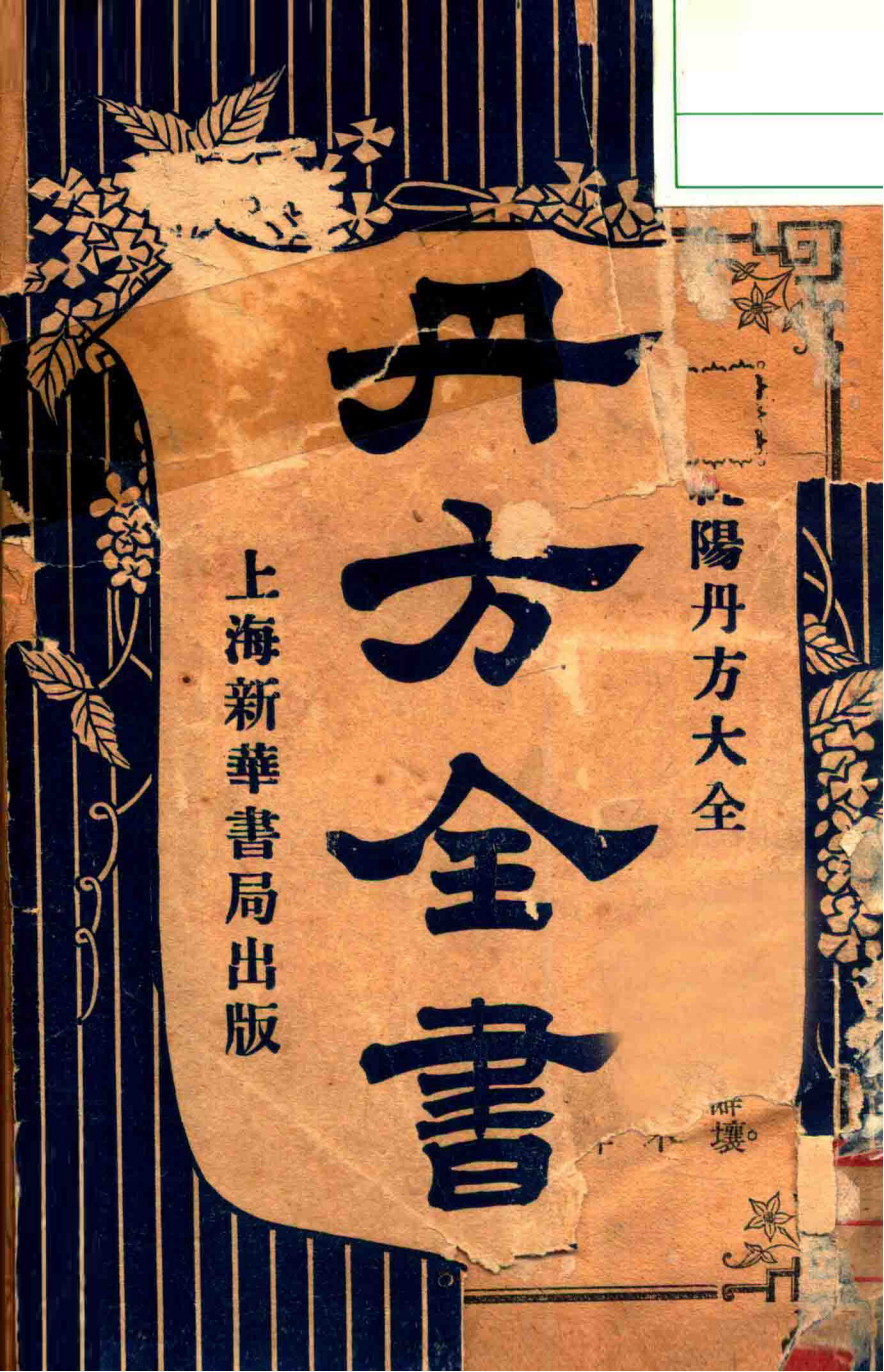 陽丹方大全
丹方全書
上海新華書局出版
壤。